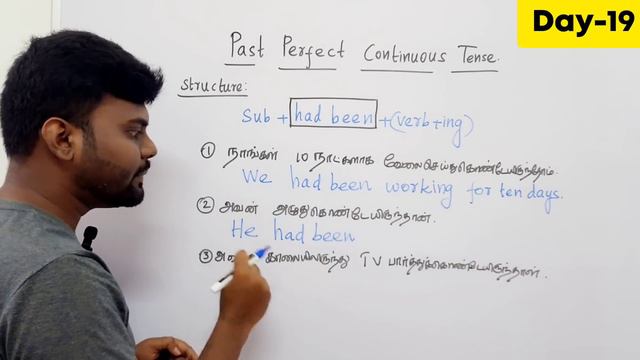 Day-19
Past Perfect Continuous Tense.
Structure:
Sub + had been + (verb+ing)
① நாங்கள் 10 நாட்களாக வேலைசெய்துகொண்டேயிருந்தோம்.
We had been working for ten days.
② அவன் அழுதுகொண்டேயிருந்தான்.
He had been
③ காலையிலிருந்து TV பார்த்துக்கொண்டேயிருந்தாள்.